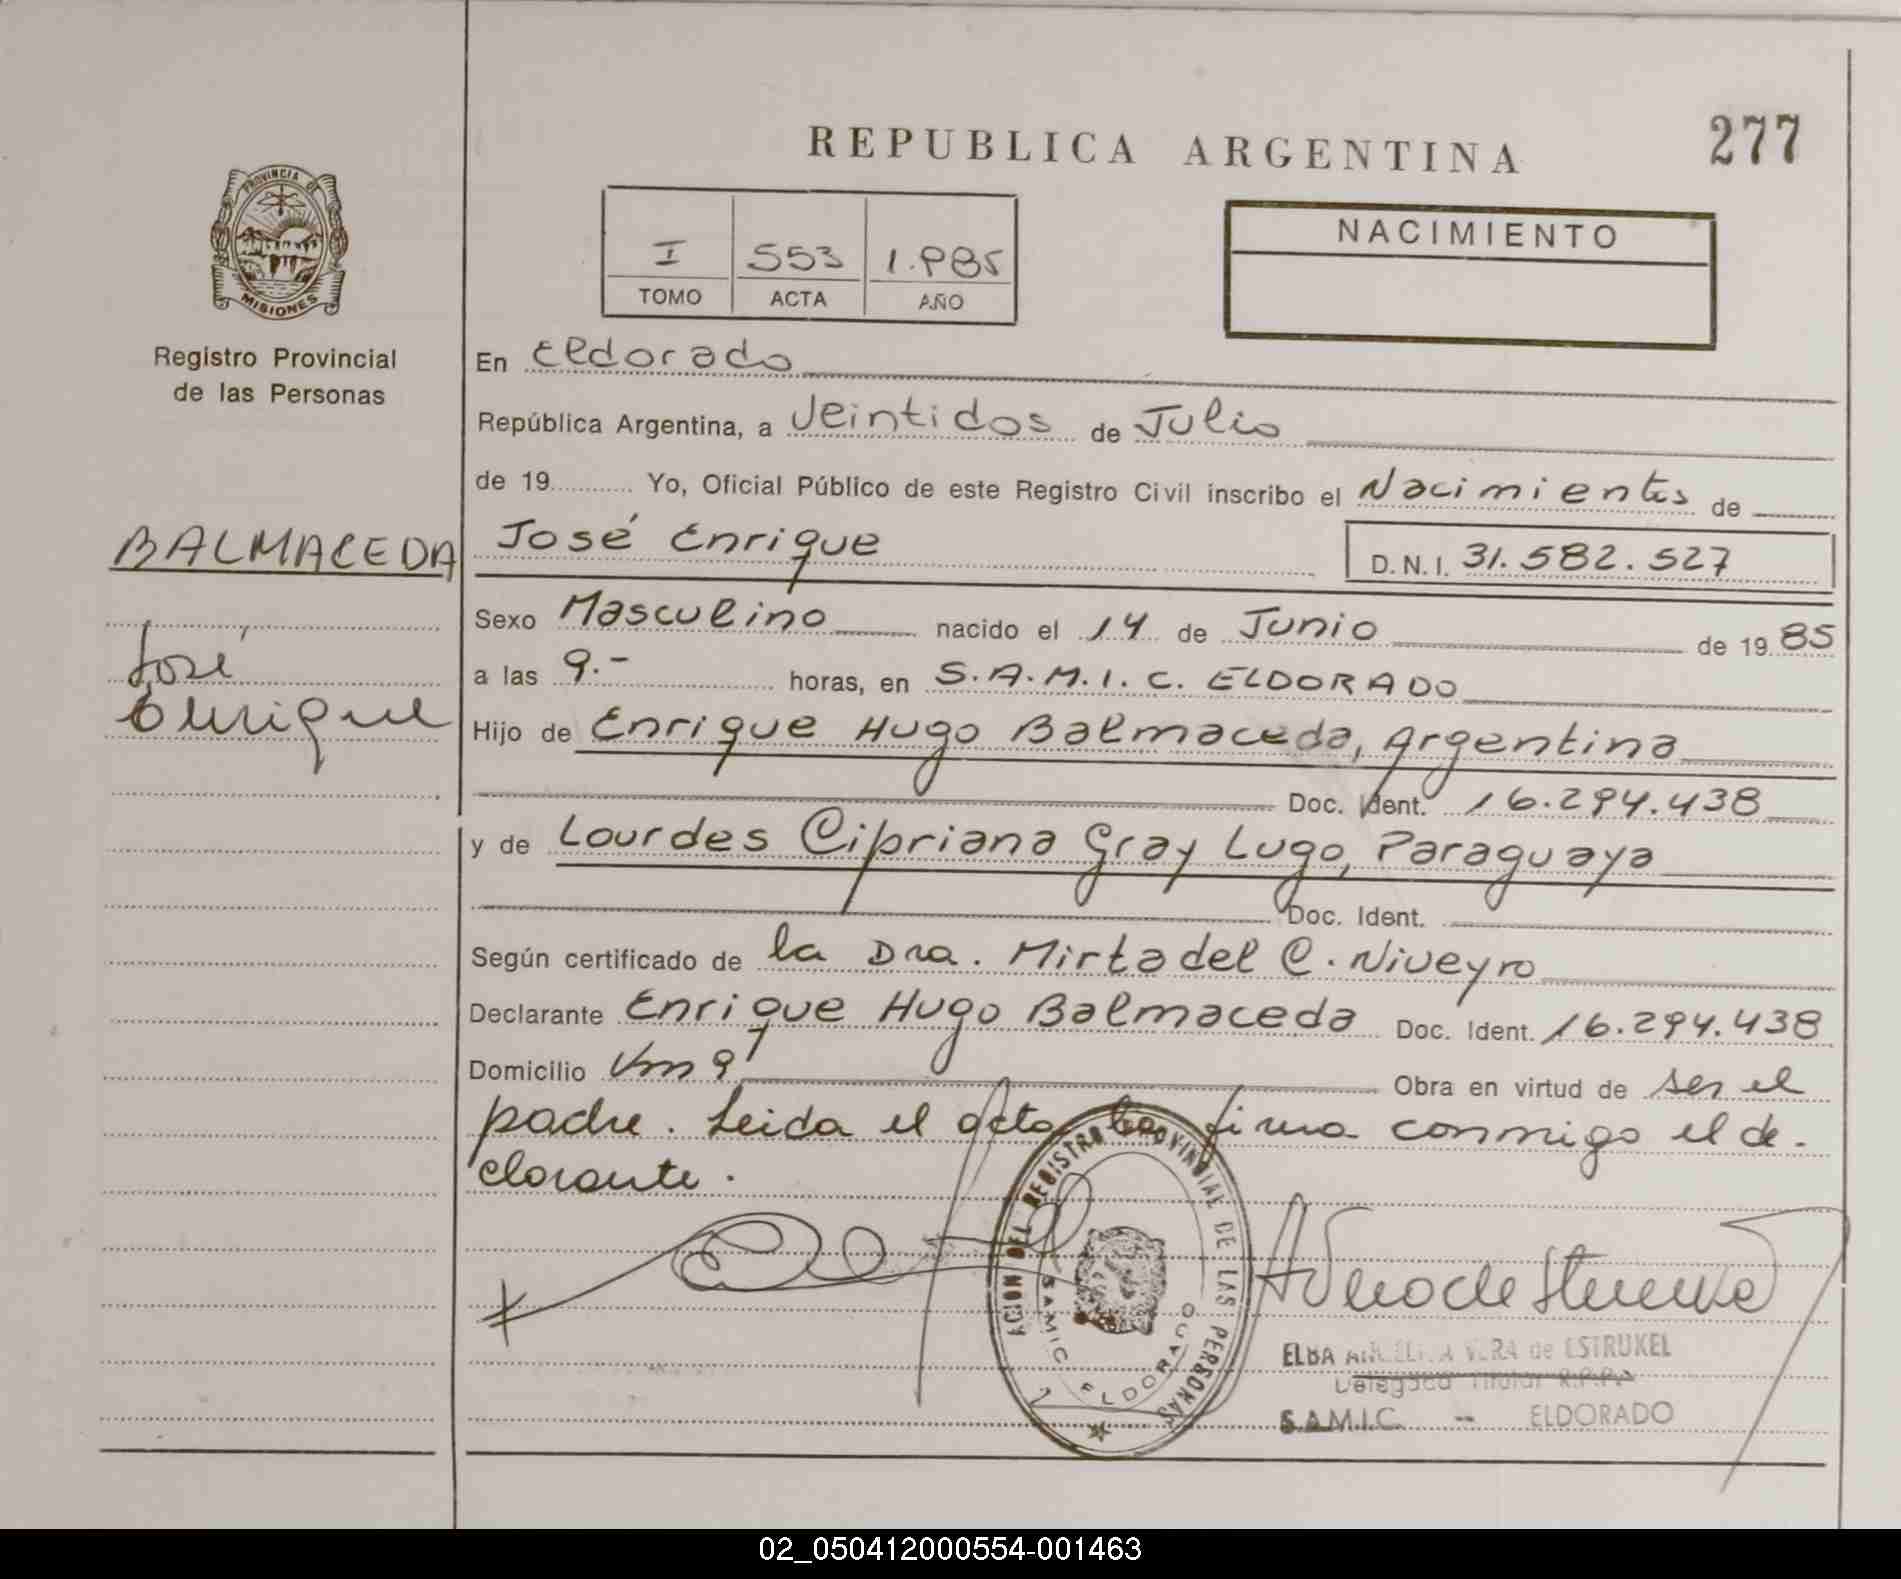 277
REPUBLICA ARGENTINA
PROVINCIA DE
MISIONES
Registro Provincial
de las Personas
I 553 1.985
TOMO ACTA AÑO
NACIMIENTO
En Eldorado
República Argentina, a Veintidos de Julio
de 19........... Yo, Oficial Público de este Registro Civil inscribo el Nacimiento de
BALMACEDA
José
Enrique
José Enrique D.N.I. 31.582.527
Sexo Masculino nacido el 14 de Junio de 19 85
a las 9.- horas, en S.A.M.I.C. ELDORADO
Hijo de Enrique Hugo Balmaceda, Argentina
Doc. Ident. 16.294.438
y de Lourdes Cipriana Gray Lugo, Paraguaya
Doc. Ident.
Según certificado de la Dra. Mirta del C. Niveyro
Declarante Enrique Hugo Balmaceda Doc. Ident. 16.294.438
Domicilio Km 9 Obra en virtud de ser el
padre. Leida el acta la firma conmigo el de-
clarante.
ACION DEL REGISTRO PROVINCIAL DE LAS PERSONAS
SAMIC ELDORADO
ELBA ANGELICA VERA de ESTRUKEL
Delegada Titular R.P.P.
S.A.M.I.C. -- ELDORADO
02_050412000554-001463